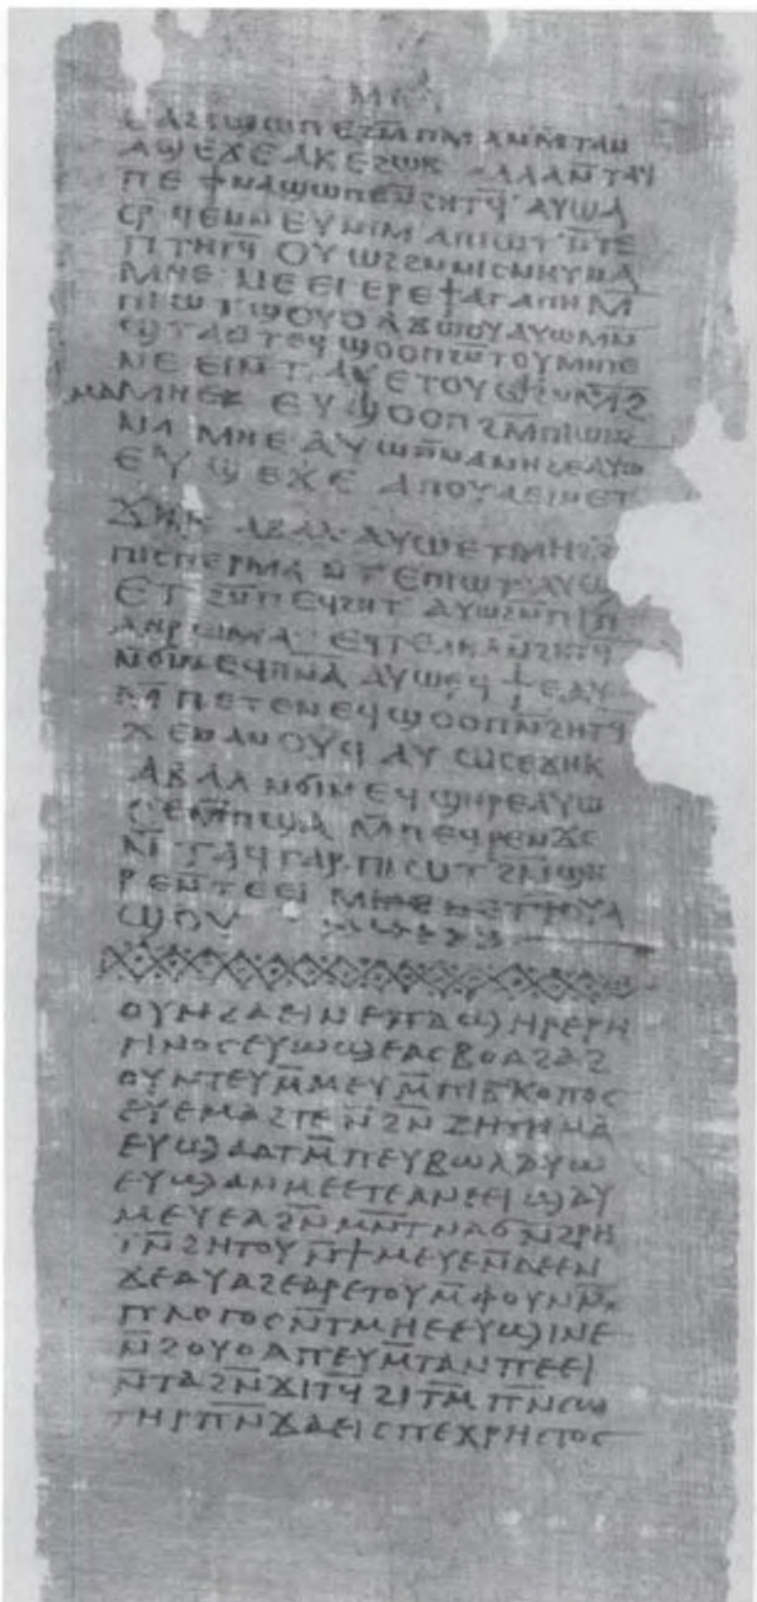 ⲉⲁϩⲓϣⲱⲡⲉ ϩⲙ̄ ⲡⲙⲁ ⲛ̄ⲙⲧⲁⲛ
ⲁϣⲉϫⲉ ⲁⲕⲉϩⲱⲃ ⲁⲗⲗⲁ ⲛ̄ⲧⲁϥ
ⲡⲉ ϯⲛⲁϣⲱⲡⲉ ⲛ̄ϩⲏⲧϥ̄ ⲁⲩⲱ ⲁ
ⲥⲣ̄ϥⲉ ⲛ̄ⲛⲉⲩ ⲛⲓⲙ ⲁⲡⲓⲱⲧ ⲛ̄ⲧⲉ
ⲡⲧⲏⲣϥ̄ ⲟⲩⲱϩ ϩⲛ ⲛⲓⲥⲛⲏⲩ ⲛⲁ
ⲙⲏⲉ ⲛⲉⲉⲓ ⲉⲣⲉϯⲁⲅⲁⲡⲏ ⲙ̄
ⲡⲓⲱⲧ ϣⲟⲩⲟ ⲁϫⲱⲟⲩ ⲁⲩⲱ ⲙⲛ̄
ϣⲧⲁ ⲛ̄ⲧⲉϥ ϣⲟⲟⲡ ϩⲛ̄ ⲧⲟⲩⲙⲏⲧⲉ
ⲛⲉⲉⲓ ⲛ̄ⲧⲁⲩ ⲉⲧⲟⲩⲱⲛϩ
ⲛⲁⲙⲏⲉ ⲉⲩϣⲟⲟⲡ ϩⲙ̄ ⲡⲓⲱⲛϩ
ⲛⲁⲙⲏⲉ ⲁⲩⲱ ⲛ̄ⲛⲁⲛⲏϩⲉ ⲁⲩⲱ
ⲉⲩϣⲉϫⲉ ⲁⲡⲟⲩⲁⲉⲓⲛ ⲉⲧ
ϫⲏⲕ ⲁⲃⲁⲗ ⲁⲩⲱ ⲉⲧⲙⲏϩ ϩ
ⲡⲓⲥⲡⲉⲣⲙⲁ ⲛ̄ⲧⲉ ⲡⲓⲱⲧ ⲁⲩⲱ
ⲉⲧϩⲛ̄ ⲡⲉϥϩⲏⲧ ⲁⲩⲱ ϩⲛ̄ ⲡⲓⲡ
ⲗⲏⲣⲱⲙⲁ ⲉϥⲧⲉⲗⲏⲗ ⲛ̄ϩⲏⲧϥ̄
ⲛ̄ϭⲓ ⲡⲉϥⲡⲛ̄ⲁ̄ ⲁⲩⲱ ⲉϥϯⲉⲁⲩ
ⲙ̄ⲡⲉⲧⲉⲛⲉϥϣⲟⲟⲡ ⲛ̄ϩⲏⲧϥ̄
ϫⲉ ⲛⲁⲛⲟⲩϥ ⲁⲩⲱ ⲥⲉϫⲏⲕ
ⲁⲃⲁⲗ ⲛ̄ϭⲓ ⲛⲉϥϣⲏⲣⲉ ⲁⲩⲱ
ⲥⲉⲙ̄ⲡϣⲁ ⲙ̄ⲡⲉϥⲣⲉⲛ ϫⲉ
ⲛ̄ⲧⲁϥ ⲅⲁⲣ ⲡⲓⲱⲧ ϩⲛ̄ϣⲏ
ⲣⲉ ⲛ̄ⲧⲉⲉⲓⲙⲓⲛⲉ ⲛⲉⲧϥⲟⲩⲁ
ϣⲟⲩ
ⲟⲩⲛ̄ ϩⲁⲉⲓⲛⲉ ⲡⲁϣⲏⲣⲉ ⲣⲏ
ⲅⲓⲛⲟⲥ ⲉⲩⲱϣⲉ ⲁⲥⲃⲟ ⲁϩⲁϩ
ⲟⲩⲛⲧⲉⲩ ⲙ̄ⲙⲉⲩ ⲙ̄ⲡⲓⲥⲕⲟⲡⲟⲥ
ⲉⲩⲉⲙⲁϩⲧⲉ ⲛ̄ϩⲛ̄ⲍⲏⲧⲏⲙⲁ
ⲉⲩϣⲁⲁⲧ ⲙ̄ⲡⲉⲩⲃⲱⲗ ⲁⲩⲱ
ⲉⲩϣⲁⲛⲙⲉⲉⲧⲉ ⲁⲛⲉⲉⲓ ϣⲁⲩ
ⲙⲉⲩⲉ ⲁϩⲛ̄ⲙⲛ̄ⲧⲛⲁϭ ⲛ̄ϩⲣⲏ
ⲓ̈ ⲛ̄ϩⲏⲧⲟⲩ ⲛ̄ϯⲙⲉⲩⲉ ⲛ̄ⲇⲉ ⲉⲛ
ϫⲉ ⲁⲩⲁϩⲉ ⲁⲣⲉⲧⲟⲩ ⲙ̄ⲫⲟⲩⲛ ⲙ̄
ⲡⲗⲟⲅⲟⲥ ⲛ̄ⲧⲙⲏⲉ ⲉⲩϣⲓⲛⲉ
ⲛ̄ϩⲟⲩⲟ ⲁⲡⲉⲩⲙ̄ⲧⲁⲛ ⲡⲉⲉⲓ
ⲛ̄ⲧⲁϩⲛ̄ϫⲓⲧϥ̄ ϩⲓⲧⲙ̄ ⲡⲛ̄ⲥⲱ
ⲧⲏⲣ ⲡⲛ̄ϫⲁⲉⲓⲥ ⲡⲉⲭⲣⲏⲥⲧⲟⲥ